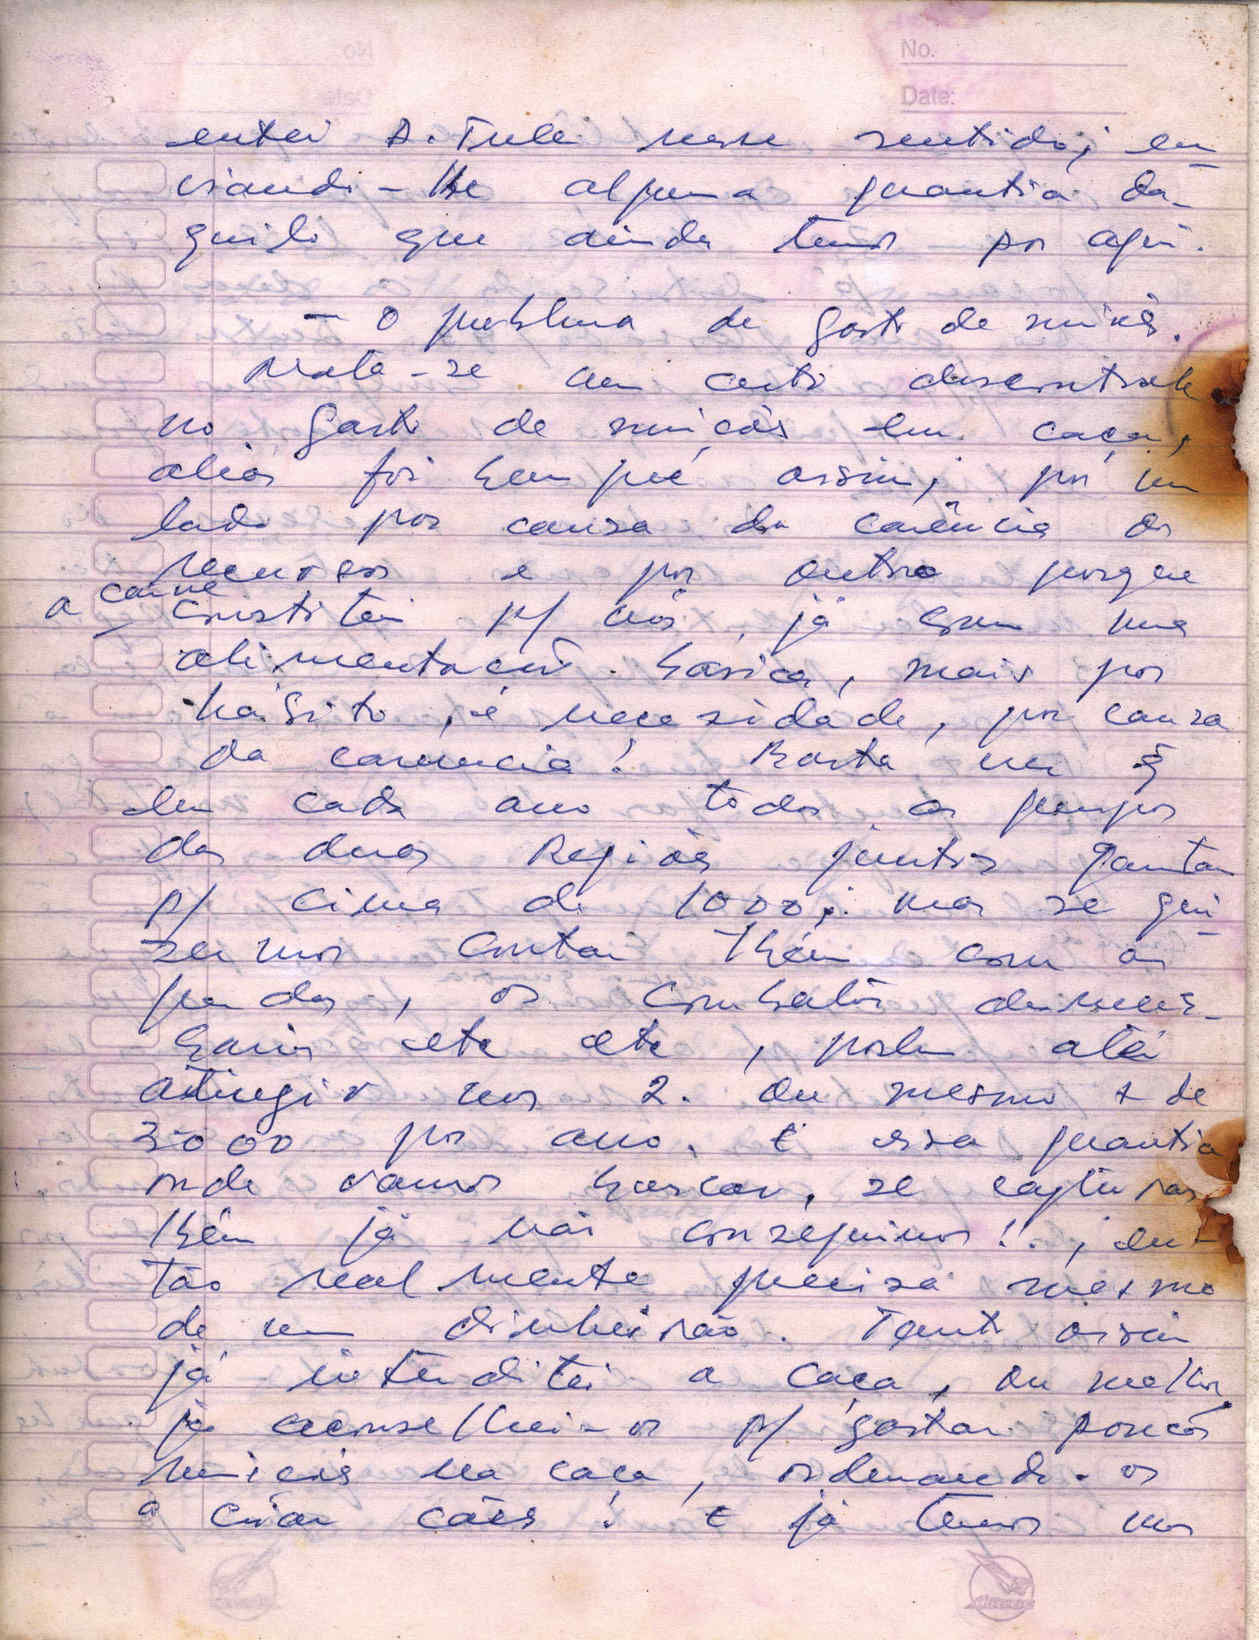 No.
Date:
entei A. Tule nesse sentido; en-
viando-lhe alguma quantia da-
quilo que ainda temos por aqui.
- O problema de gasto de munições.
Nota-se um certo descontrole
no gasto de munições em caça,
aliás foi sempre assim; por um
lado por causa da carência de
recursos e por outro porque
a carne
constitui p/ nós já como uma
alimentação básica, mais por
hábito, é necessidade, por causa
da carência! Basta ver q
em cada ano todos os grupos
das duas Regiões juntos gastam
p/ cima de 1000; mas se qui-
zermos contar tbém com as
perdas, os combates desneces-
sários etc etc, pode até
atingir uns 2. ou mesmo + de
3000 por ano. E essa quantia
onde vamos buscar, se capturas
tbém já não conseguimos!.; en-
tão realmente precisa mesmo
de um dinheirão. Tanto assim
já interditei a caça, ou melhor
já aconselhei-os p/ gastar poucas
munições na caça, ordenando-os
a criar cães! E já temos uns